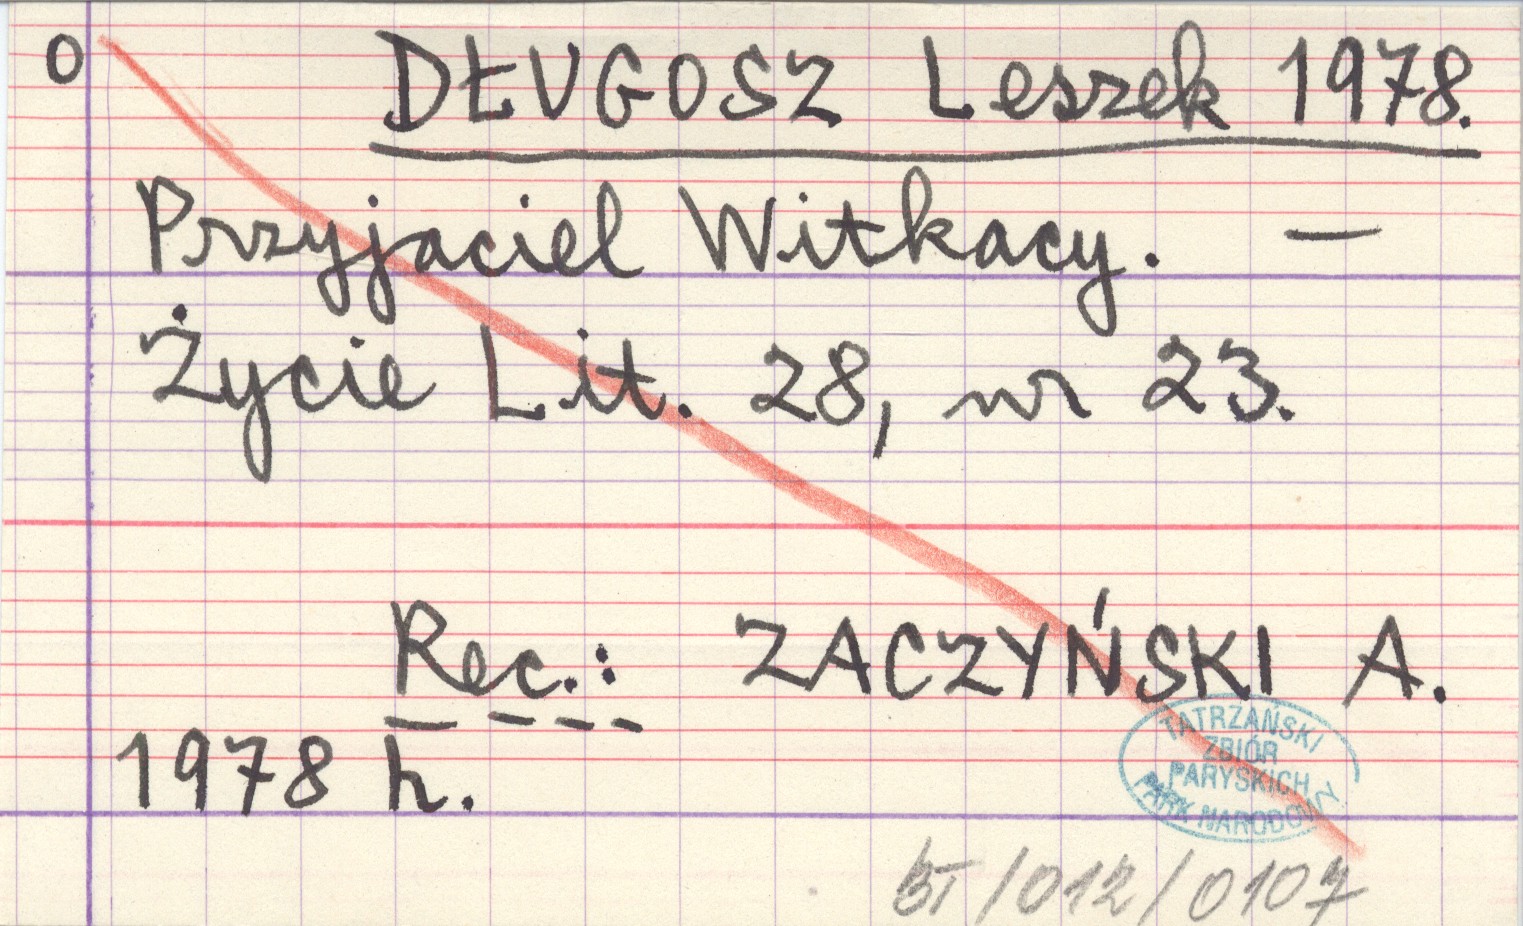 O DŁUGOSZ Leszek 1978.
Przyjaciel Witkacy. —
Życie Lit. 28, nr 23.
Rec.: ZACZYŃSKI A.
1978 h.
TATRZAŃSKI
ZBIÓR
PARYSKICH
PARK NARODOWY
BT/012/0107